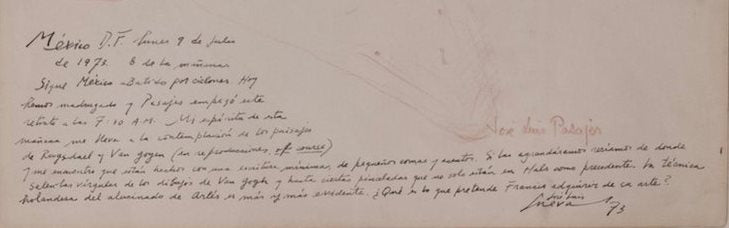 México D.F. lunes 9 de julio
de 1973. 8 de la mañana
Sigue México abatido por ciclones. Hoy
hemos madrugado y Pasajes empezó este
retrato a las 7:30 A.M. Mi espíritu de esta
mañana me lleva a la contemplación de los paisajes
de Ruysdael y Van Goyen (en reproducciones, of course)
y me encuentro que están hechos con una escritura mínima, de pequeñas comas y acentos. Si las agrandáramos veríamos de donde
salen las vírgulas de los dibujos de Van Gogh y hasta ciertas pinceladas que no solo están en Hals como precedente. La técnica
holandesa del alucinado de Arles es más y más evidente. ¿Qué es lo que pretende Francis adquirir de ca arte?
José Luis Pasajes
José Luis
Cuevas 73